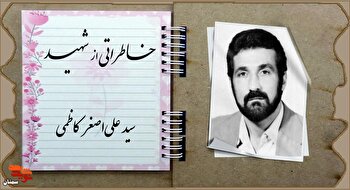 خاطراتی از شهید
سید علی اصغر کاظمی
سمنان